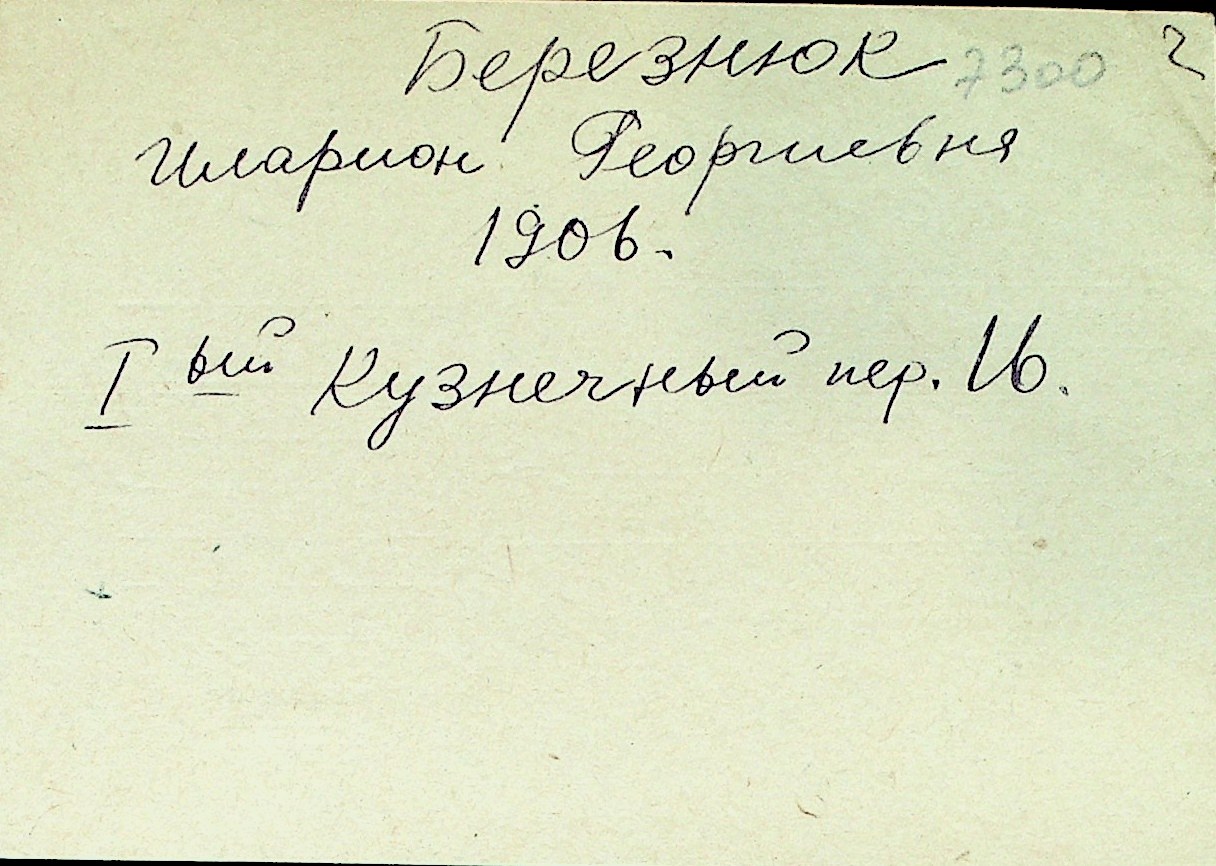 Березнюк 7300
Иларион Георгиевня
1906.
I ый Кузнечный пер. 16.